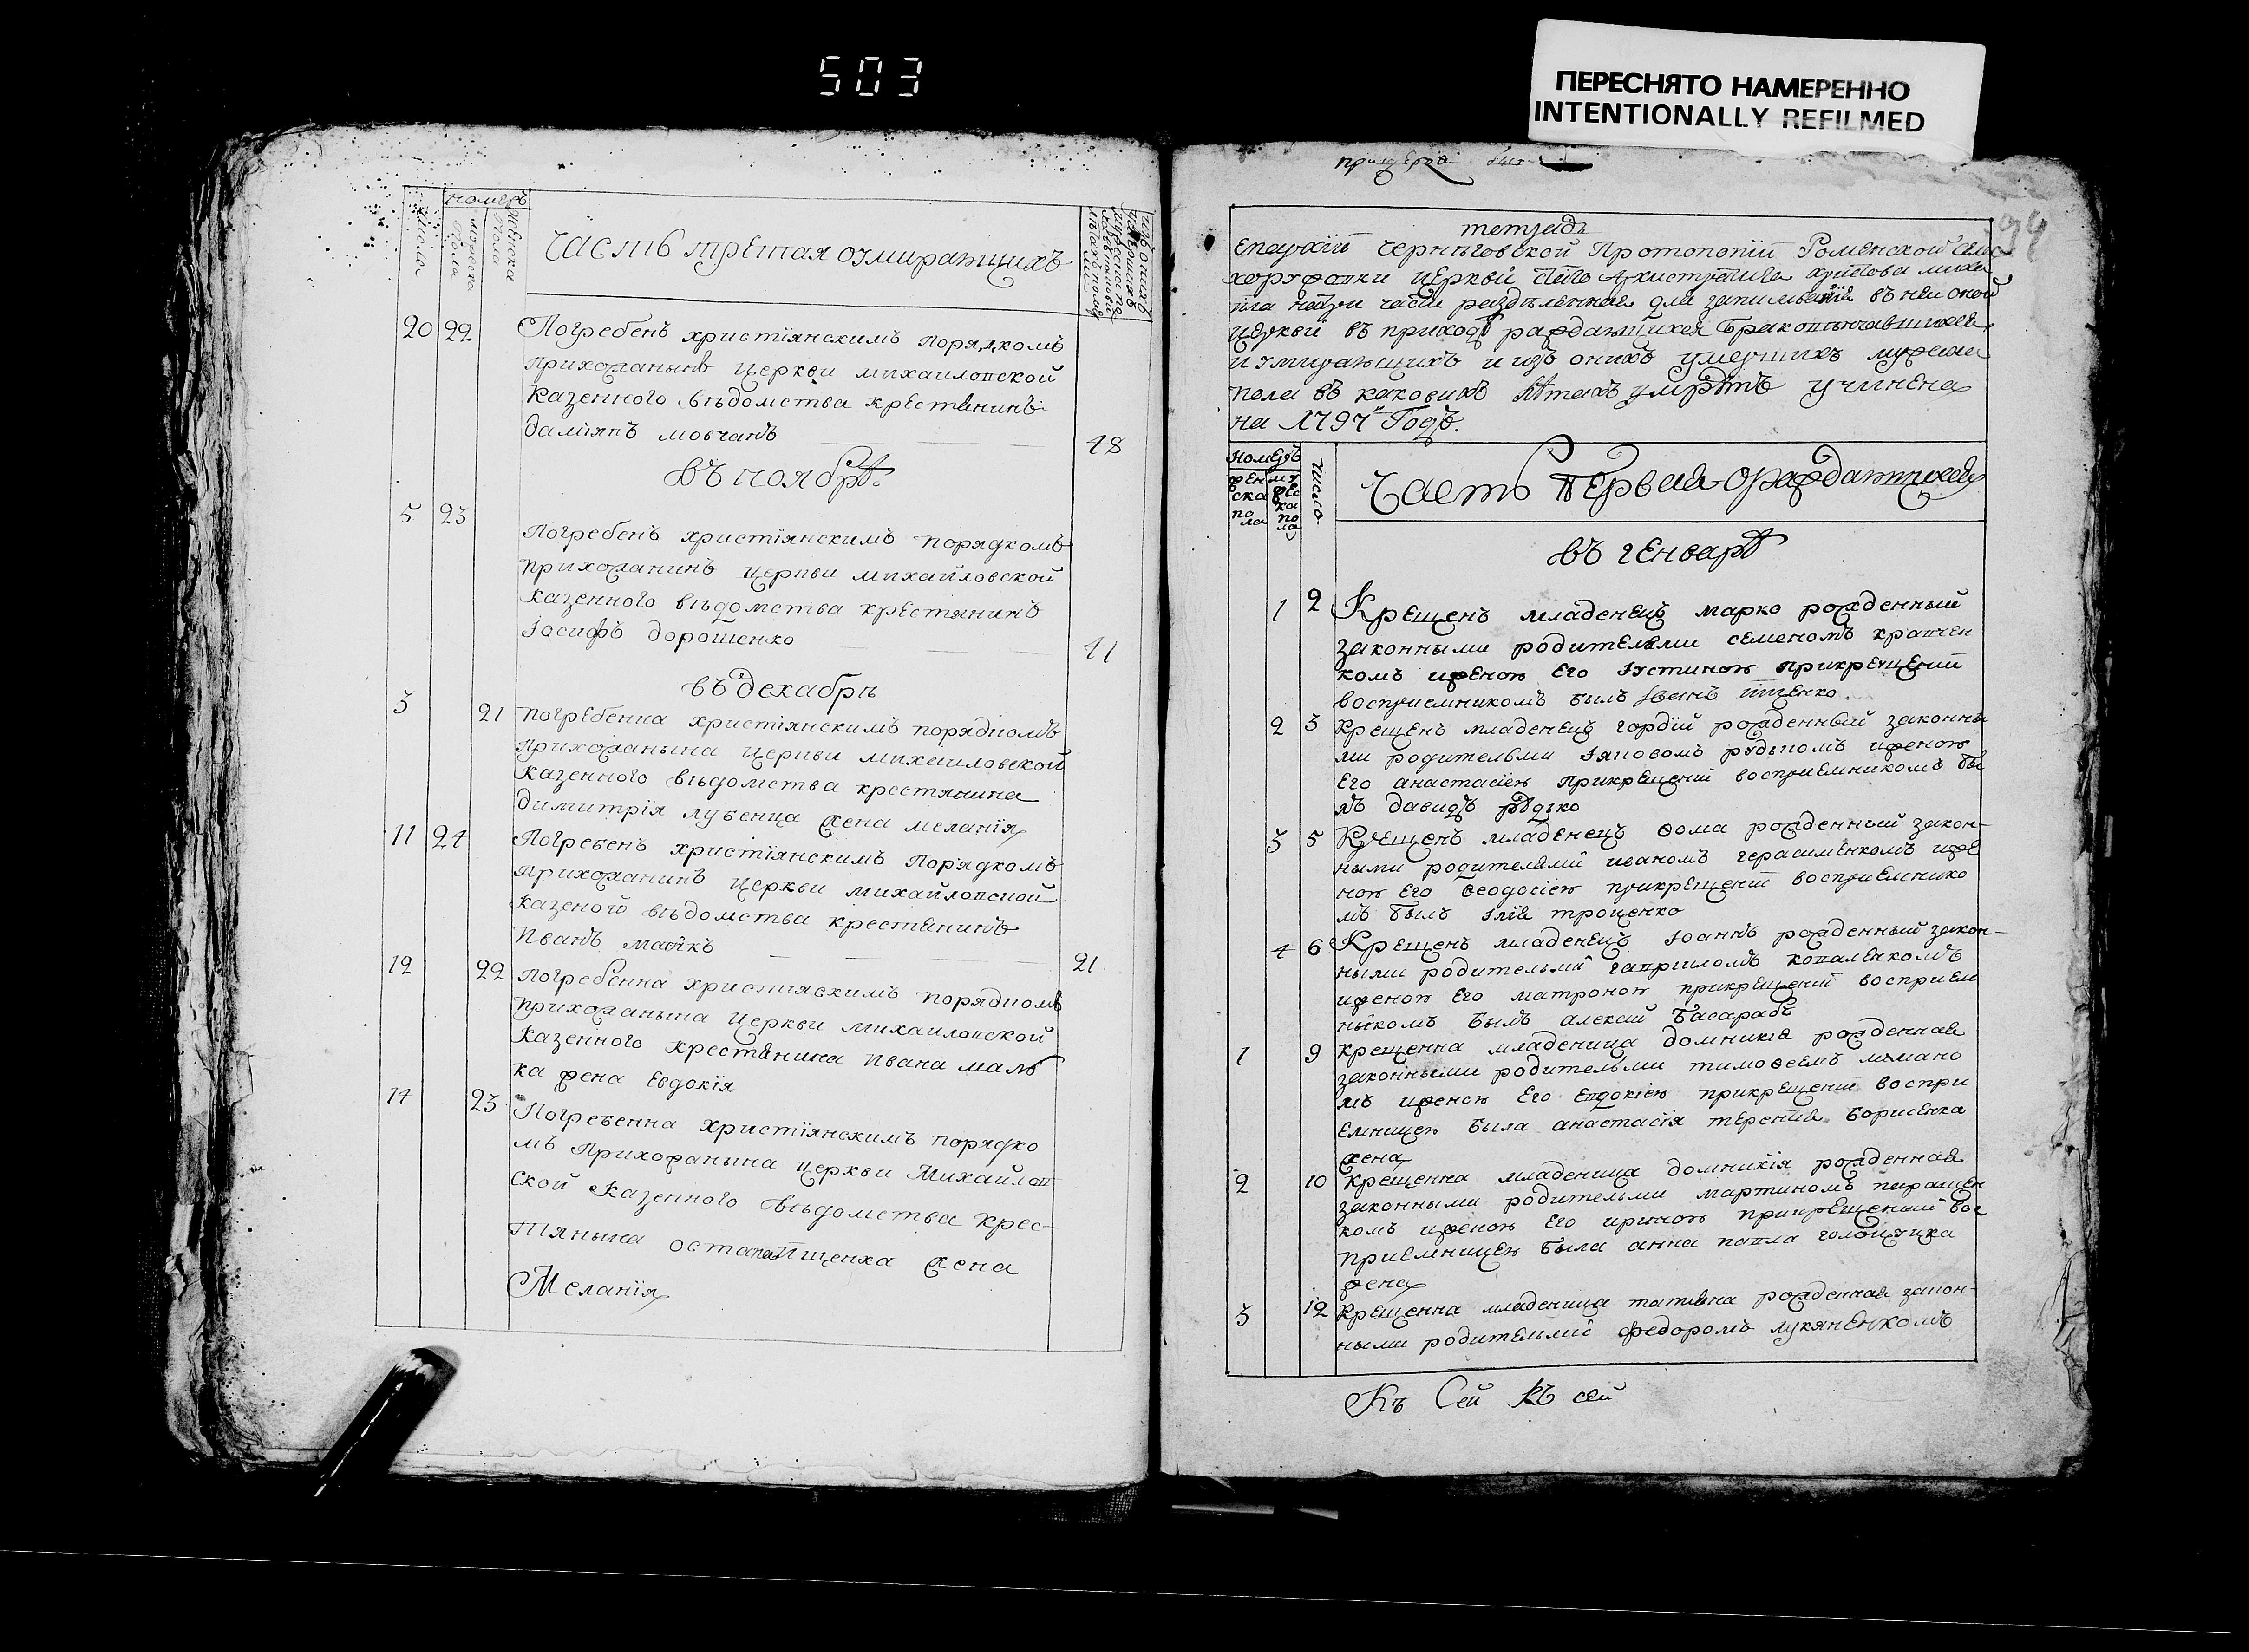 503
ПЕРЕСНЯТО НАМЕРЕННО
INTENTIONALLY REFILMED
номеръ
числа
мужеска пола
женска пола
часть третая оумирающихъ
20 22 Погребенъ христіянскимъ порядкомъ
прихожанынъ церкви михаиловской
казенного вѣдомства крестянинъ
даміянъ мовчанъ 48
въ ноябрѣ
5 23
Погребенъ христіянскимъ порядкомъ
прихожанинъ церкви михайловской
казенного вѣдомства крестянинъ
Іосифъ дорошенко 41
въ декабрѣ
3 21 погребенна христіянскимъ порядкомъ
прихожанына церкви михаиловской
казенного вѣдомства крестянина
димитрія лубенца жена меланія
11 24 Погребенъ христіянскимъ порядкомъ
прихожанинъ церкви михайловской
казеной вѣдомства крестянинъ
Иванъ
21
12 22 Погребенна християнскимъ порядкомъ
прихожанына церкви михаиловской
казенного крестянина ивана
ка жена евдокія
14 23 Погребенна христіянскимъ порядко
мъ прихожанына церкви Михайлов
ской казенного вѣдомства крес-
тянына остапа ищенка жена
Меланія
94
тетрадь
епархіи черниговской Протопопіи Роменской села
церкви архистратига михаи
ла на три части раздѣленная для записыванія въ ней оной
церкви въ приходѣ раждающихся бракопѣнчавшихся
и умирающихъ и изъ онихъ умершихъ мужеска
пола въ каковихъ лѣтахъ умрѣтъ учинена
на 1797 Годъ.
Номеръ
женска пола
мужеска пола
число
Часть первая ораждающихся
въ генварѣ
1 2 Крещенъ младенецъ марко рожденный
законными родителями семеномъ кравчен
комъ иженою его Іустиною прикрещении
восприемникомъ былъ Іванъ
2 3 Крещенъ младенецъ гордій рожденный законны
ми родителями Іяковомъ рудыкомъ иженою
его анастасіею прикрещеніи восприемникомъ бы
лъ давидъ рѣдзко
3 5 Крещенъ младенецъ ѳома рожденный закон-
ными родителями иваномъ герасименкомъ иже
ною его ѳеодосіею прикрещеніи восприемнико
мъ былъ Ілія троценко
4 6 Крещенъ младенецъ Іоаннъ рожденный закон-
ными родителми гавриломъ коваленкомъ
иженою его матроною прикрещеніи восприем
никомъ былъ алексій басарабъ
1 9 крещенна младеница домникія рожденная
законными родителми тимоѳеемъ
мъ иженою его евдокіею прикрещении воспри
емницею была анастасія терентія борисенка
жена
2 10 крещенна младеница домникія рожденная
законными родителми мартиномъ
комъ иженою его ириною прикрещеніи вос
приемницею была анна павла
жена
3 12 крещенна младеница татіяна рожденная закон-
ными родителми федоромъ лукяненкомъ
Къ Сей Къ сей